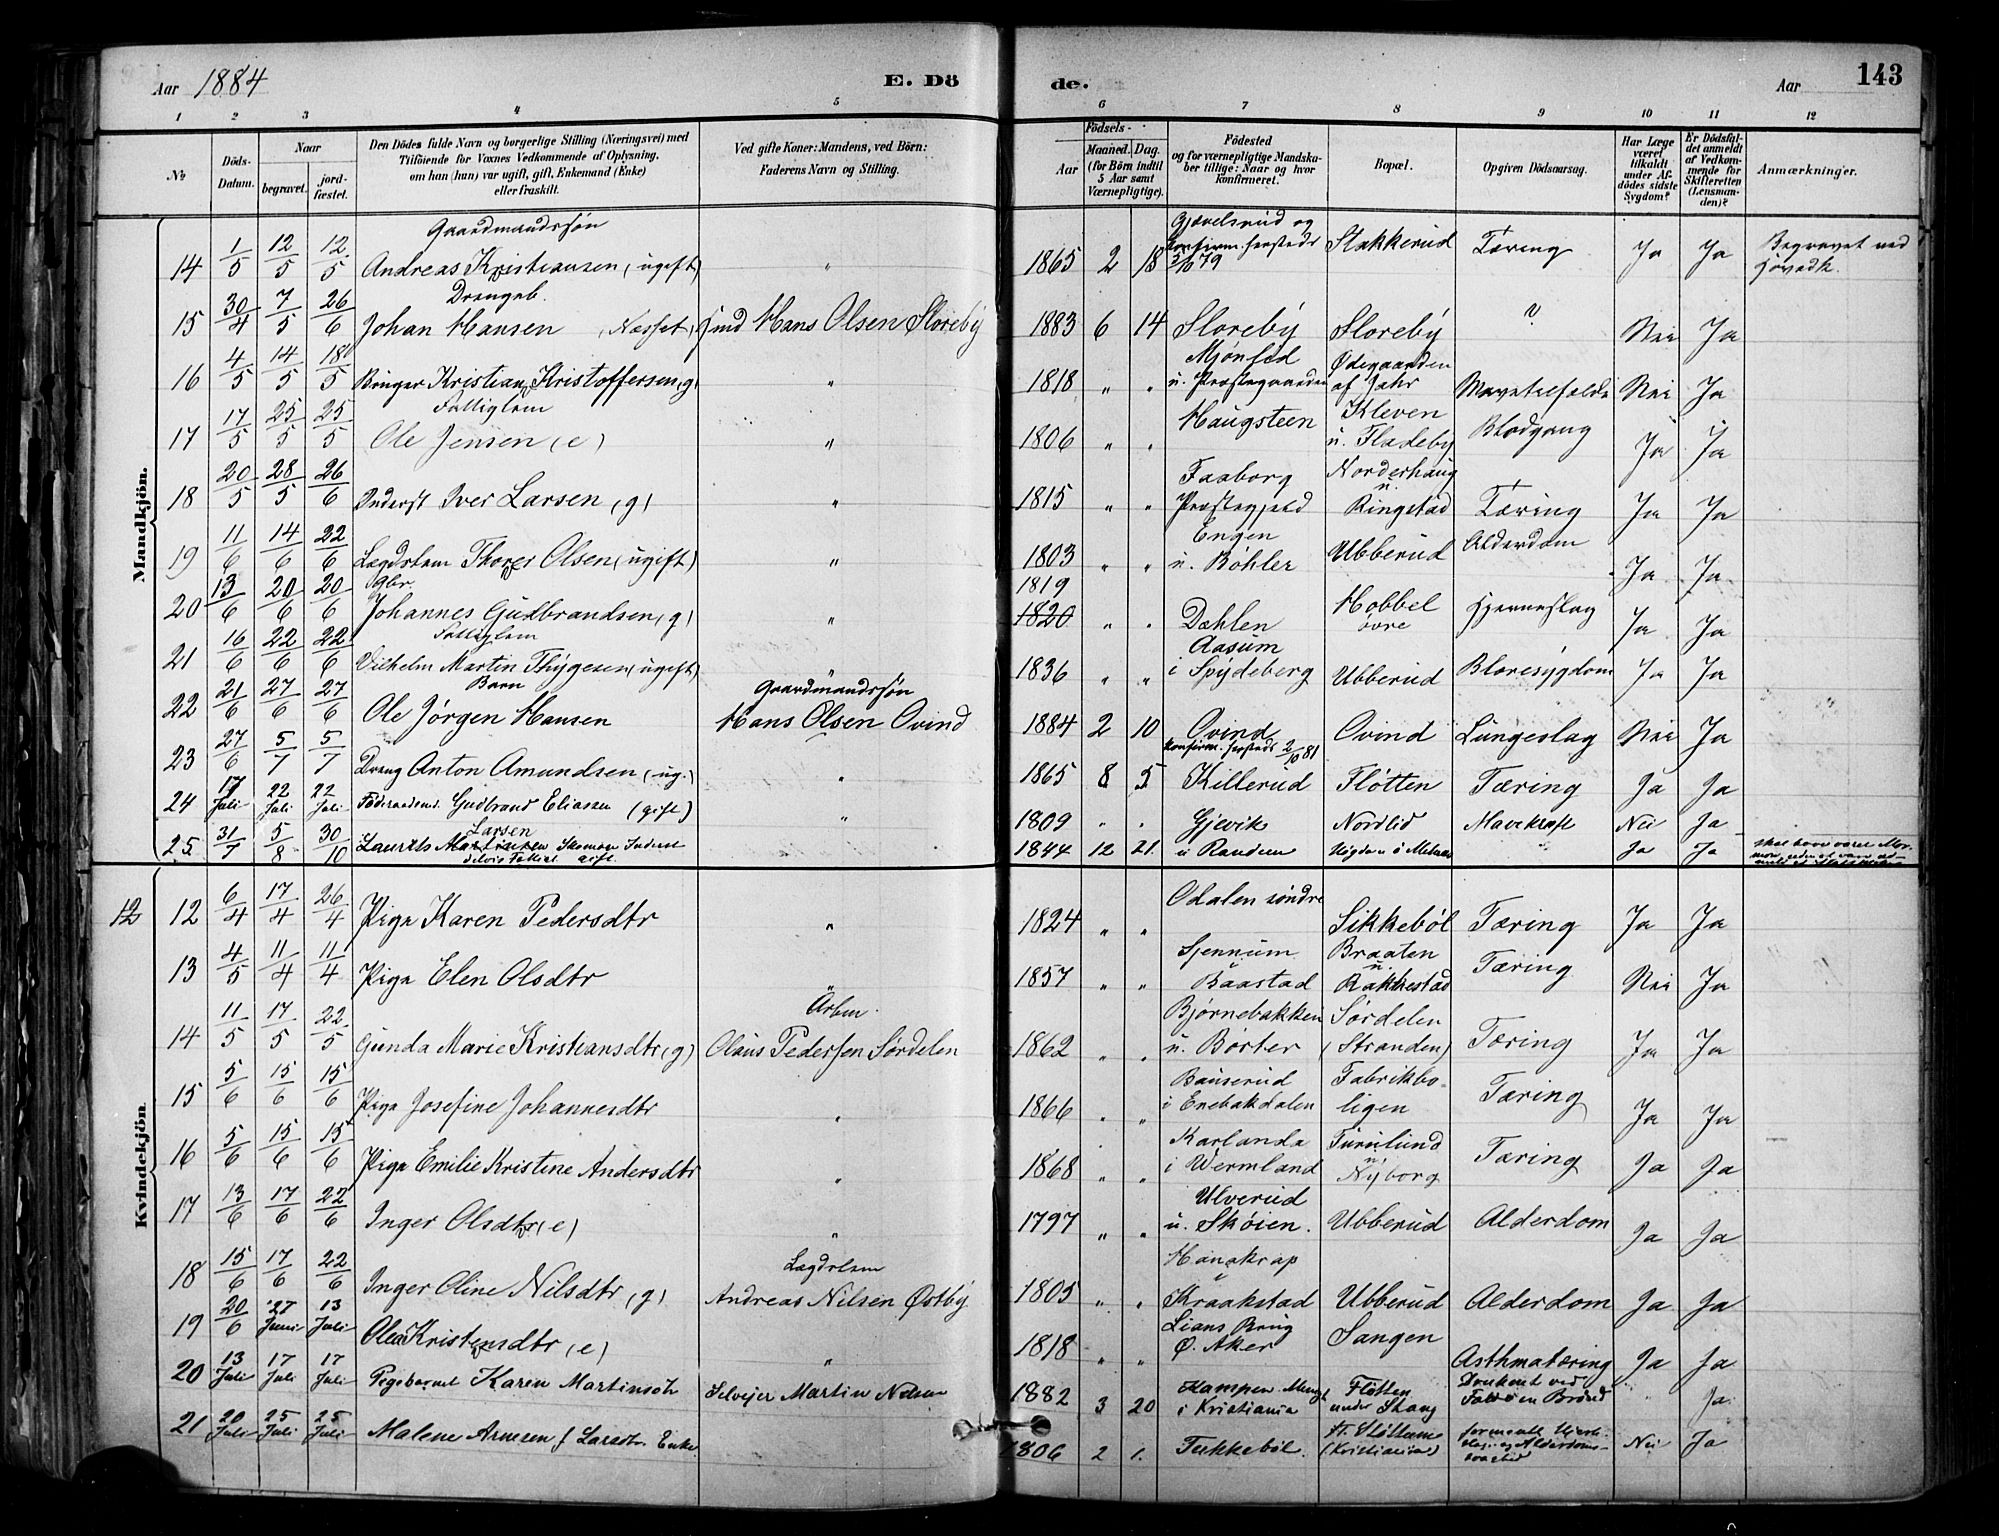 Aar 1884
E. Dö
de.
Aar
143
1 2 3 4 5
6 7 8 9 10 11 12
№
Döds-Datum.
Naar
begravet.
jord-fæstet.
Den Dödes fulde Navn og borgerlige Stilling (Næringsvei) med
Tilföiende for Voxnes Vedkommende af Oplysning,
om han (hun) var ugift, gift, Enkemand (Enke)
eller fraskilt.
Ved gifte Koner: Mandens, ved Börn:
Faderens Navn og Stilling.
Födsels-
Aar
Maaned.
Dag.
(for Börn indtil
5 Aar samt
Værnepligtige).
Födested
og for værnepligtige Mandska-
ber tillige: Naar og hvor
konfirmeret.
Bopæl.
Opgiven Dödsaarsag.
Har Læge
været
tilkaldt
under Af-
dödes sidste
Sygdom?
Er Dödsfal-
det anmeldt
af Vedkom-
mende for
Skifteretten
(Lensman-
den)?
Anmærkninger.
Mandkjön.
14 1/5 12/5 12/5 Gaardmandssøn Andreas Kristiansen (ugift) " 1865 2 18 Gjævelsrud og konfirm. sammesteds 5/10 79 Stakkerud Tæring Ja Ja Begravet ved Hovedk.
15 30/4 7/5 26/6 Drengeb. Johan Hansen (Næsset) Hans Olsen Storeby 1883 6 14 Storeby Storeby ? Nei Ja
16 4/5 14/5 18/5 Kristian Kristoffersen (g) " 1818 " " u. Præstegaarden Ødegaarden af Jahr Nei Ja
17 17/5 25/5 25/5 Fattiglem Ole Jensen (e) " 1806 " " Haugsteen Kleven u. Fladeby Blodgang Ja Ja
18 20/5 28/5 26/6 Inderst Iver Larsen (g) " 1815 " " Faaborg Præstegjeld Norderhaug u. Ringstad Tæring Ja Ja
19 11/6 14/6 22/6 Lægdslem Thorer Olsen (ugift) " 1803 " " Engen u. Bøhler Ubberud Alderdom Ja Ja
20 13/6 20/6 20/6 Gbr. Johannes Gudbrandsen (g) " 1819 1820 " " Dæhlen Hobbel øvre Hjerneslag Ja Ja
21 16/6 22/6 22/6 Fattiglem Vilhelm Martin Thygesen (ugift) " 1836 " " Aasum i Spydeberg Ubberud Blæresygdom Ja Ja
22 21/6 27/6 27/6 Barn Ole Jørgen Hansen Gaardmandssøn Hans Olsen Ovind 1884 2 10 Ovind Ovind Lungeslag Nei Ja
23 27/6 5/7 5/7 Dreng Anton Amundsen (ug.) " 1865 8 5 Konfirm. 2/10 81 Killerud Fløtten Tæring Ja Ja
24 17 Juli 22 Juli 22 Juli Føderaadsmd. Gudbrand Eliassen (gift) " 1809 " " Gjevik Nordlid Mavekræft Nei Ja
25 31/7 5/8 30/10 Laurits Larsen Martinsen Skomager Inderst delvis Fattigl. gift 1844 12 21 u Randem " Ja Ja
Kvindekjön
12 12 6/4 17/4 26/4 Pige Karen Pedersdtr " 1824 " " Odalen søndre Sikkebøl Tæring Ja Ja
13 4/5 11/4 11/4 Pige Elen Olsdtr " 1857 " " Sjennum i Baastad Braaten u. Rakkestad Tæring Nei Ja
14 11/5 17/5 22/5 Gunda Marie Kristiansdtr (g) Arbm. Olaus Pedersen Sørdelen 1862 " " Bjørnebakken u. Børter Sørdelen (Stranden) Tæring Ja Ja
15 5/6 15/6 15/6 Pige Josefine Johannesdtr " 1866 " " Bauserud i Enebakdalen Fabrikboligen Tæring Ja Ja
16 5/6 15/6 15/6 Pige Emilie Kristine Andersdtr " 1868 " " Karlanda i Wermland Furulund u. Nyborg Tæring Ja Ja
17 13/6 17/6 22/6 Inger Olsdtr (e) " 1797 " " Ulverud u. Skøien. Ubberud Alderdom Ja Ja
18 15/6 17/6 22/6 Inger Oline Nilsdtr (g) Lægdslem Andreas Nilsen Østby 1805 " " i Kraakstad Ubberud Alderdom Ja Ja
19 20/6 27 Juni 13 Juli Olea Kristensdtr (e) " 1818 " " Lians Brug Ø. Aker Sangen Asthmatæring Ja Ja
20 13 Juli 17 Juli 17 Juli Pigebarnet Karen Martinsdt Selvejer Martin Nilsen 1882 3 20 Kampen i Kristiania Fløtten under Stang Druknet ved Fald i en Brønd " Ja
21 20 Juli 25 Juli 25 Juli Malene Arnesen f. Larsdtr Enke 1806 2 1. Tukkebøl (Kristiania) Nei Ja